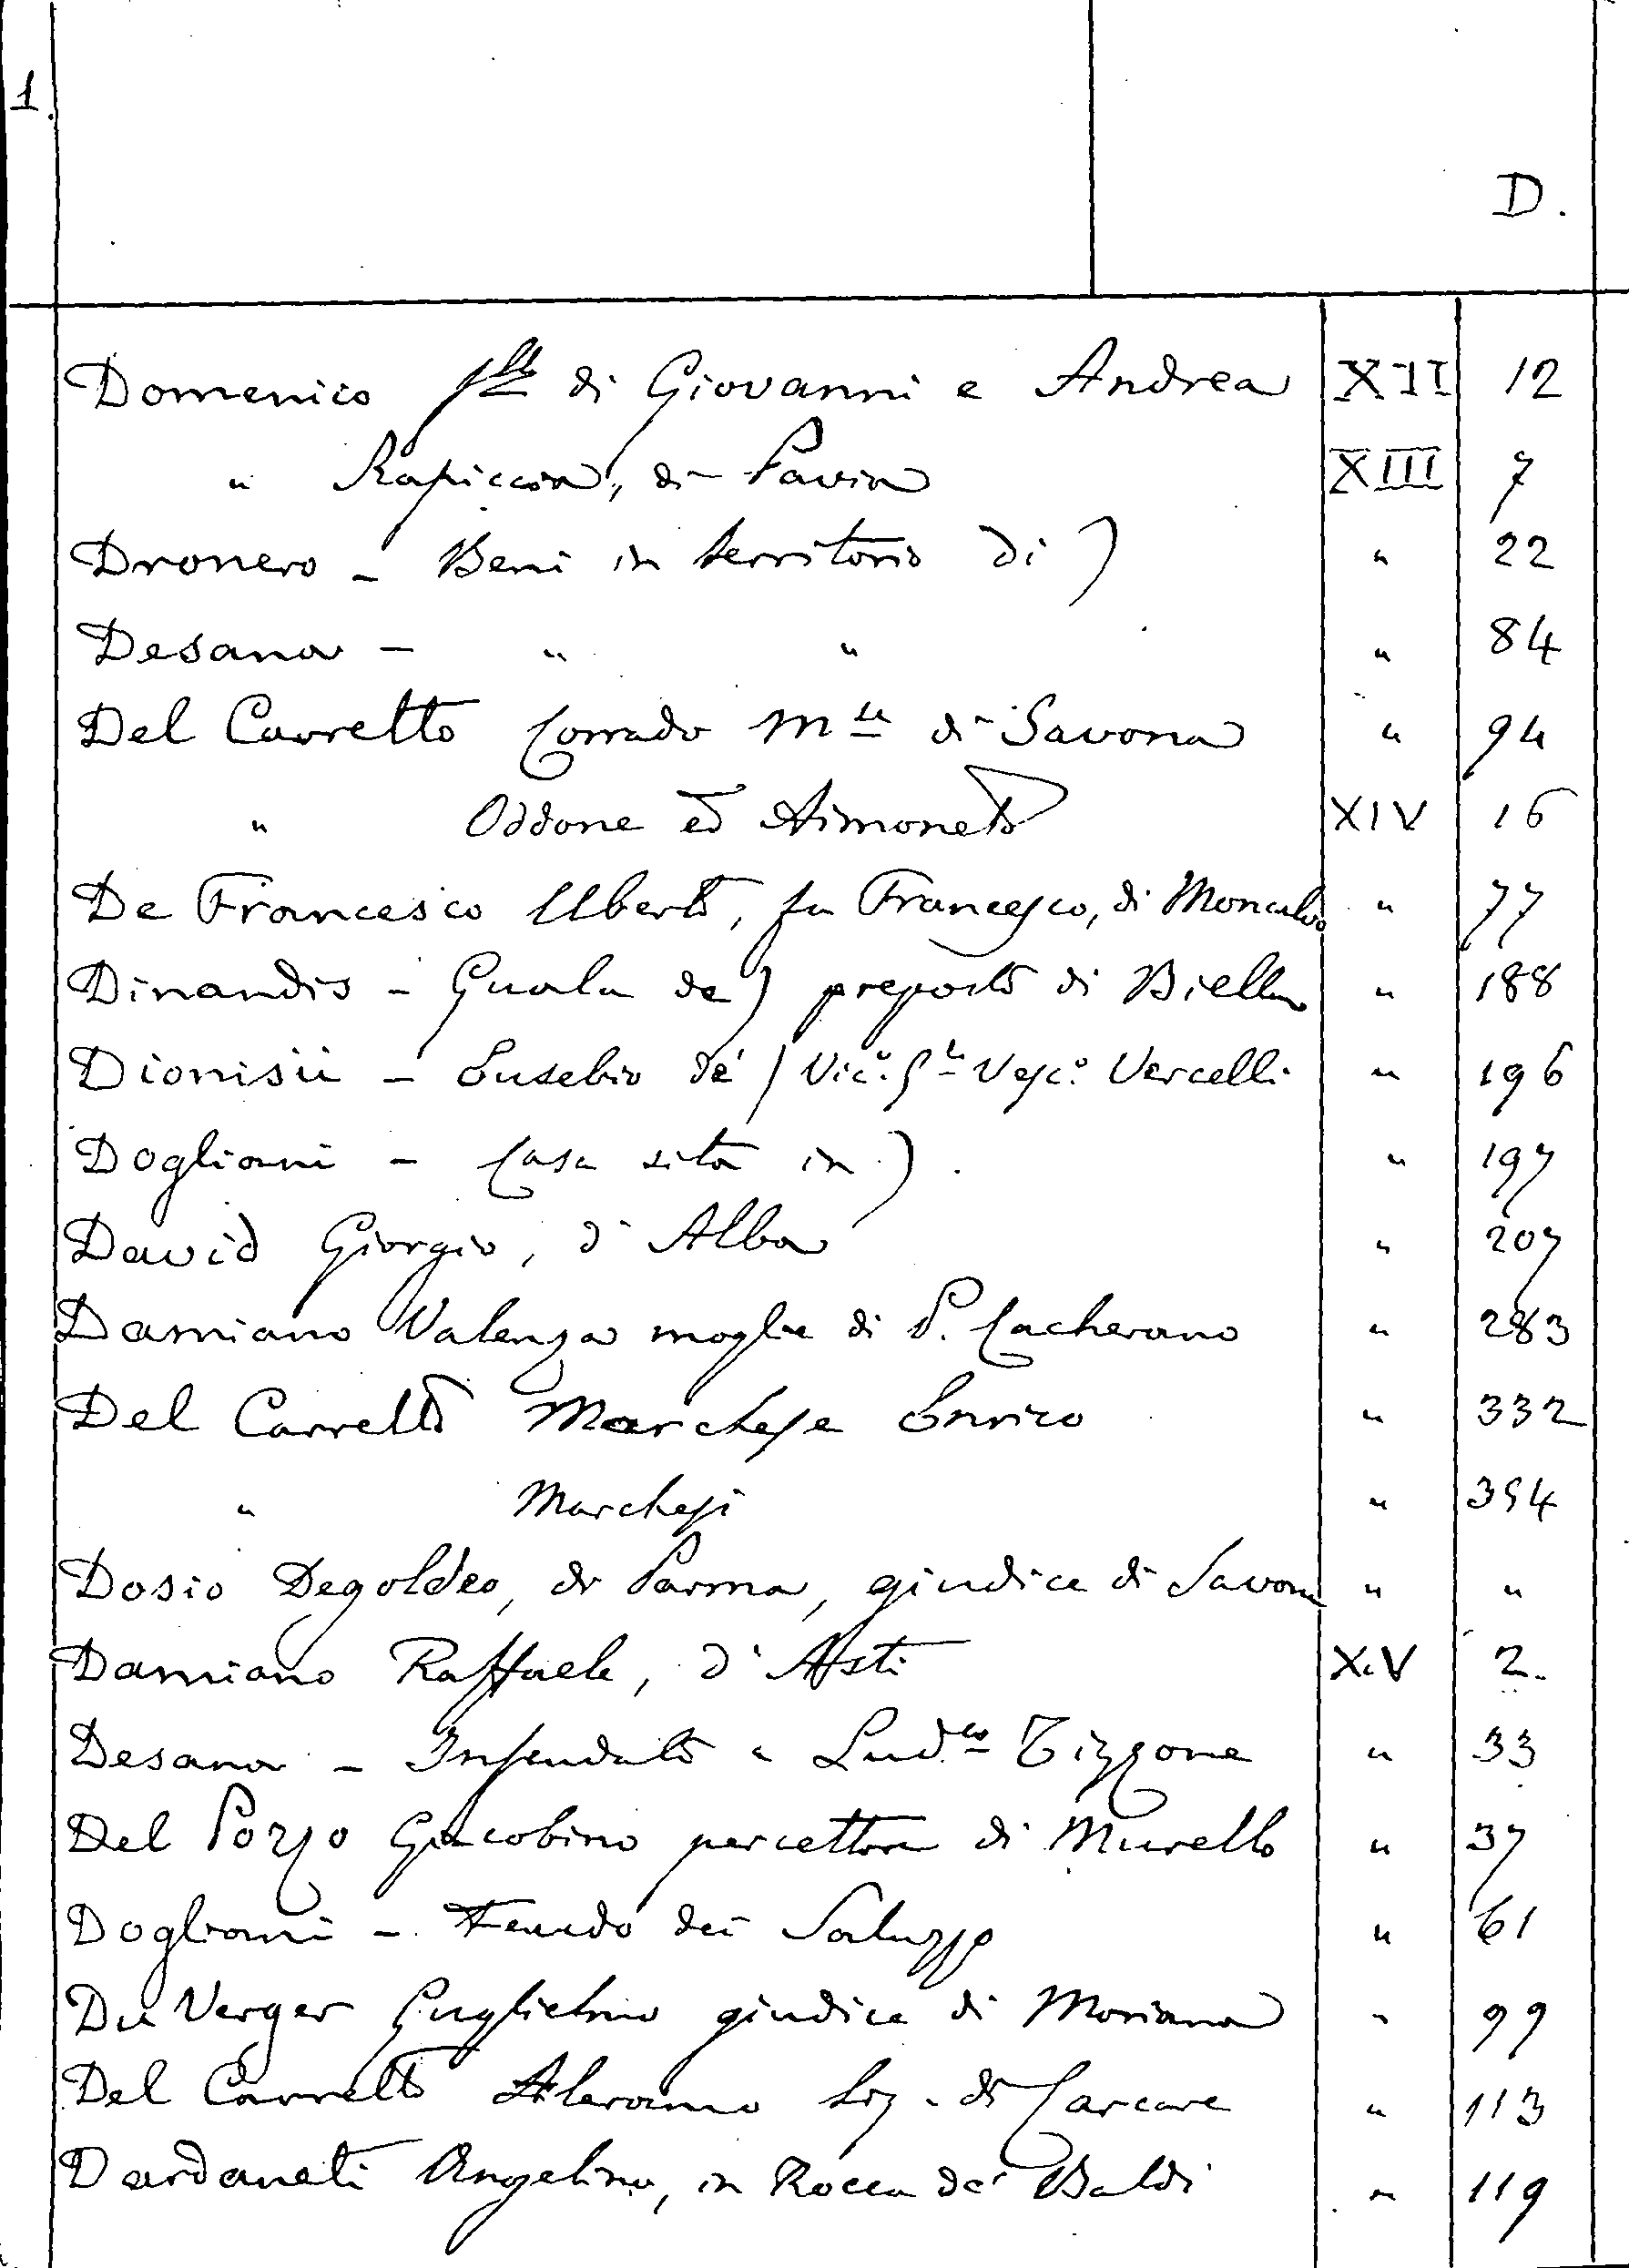 1.
D.
Domenico flli di Giovanni e Andrea XII 12
" Rapiccia, di Pavia XIII 7
Dronero - Beni in territorio di) " 22
Desana - " " " 84
Del Carretto Corrado Mse di Savona " 94
" Oddone ed Aimoneto XIV 16
De Francesco Uberto, fu Francesco, di Moncalvo " 77
Dinandis - Guala de) preposto di Biella " 188
Dionisii - Eusebio de') Vico. Gle Vesco. Vercelli " 196
Dogliani - Casa sita in). " 197
David Giorgio, d'Alba " 207
Damiano Valenza moglie di P. Cacherano " 283
Del Carretto Marchese Enrico " 332
" Marchesi " 354
Dosio Degoldeo, di Parma, giudice di Savona " "
Damiano Raffaele, d'Asti XV 2.
Desana - Infeudato a Ludco Tizzone " 33
Del Pozzo Giacobino percettore di Murello " 37
Dogliani - Feudo dei Saluzzo " 61
Du Verger Guglielmo giudice di Moriana " 99
Del Carretto Aleramo Sig. di Carcare " 113
Dardaneti Angelino, in Rocca de' Baldi " 119